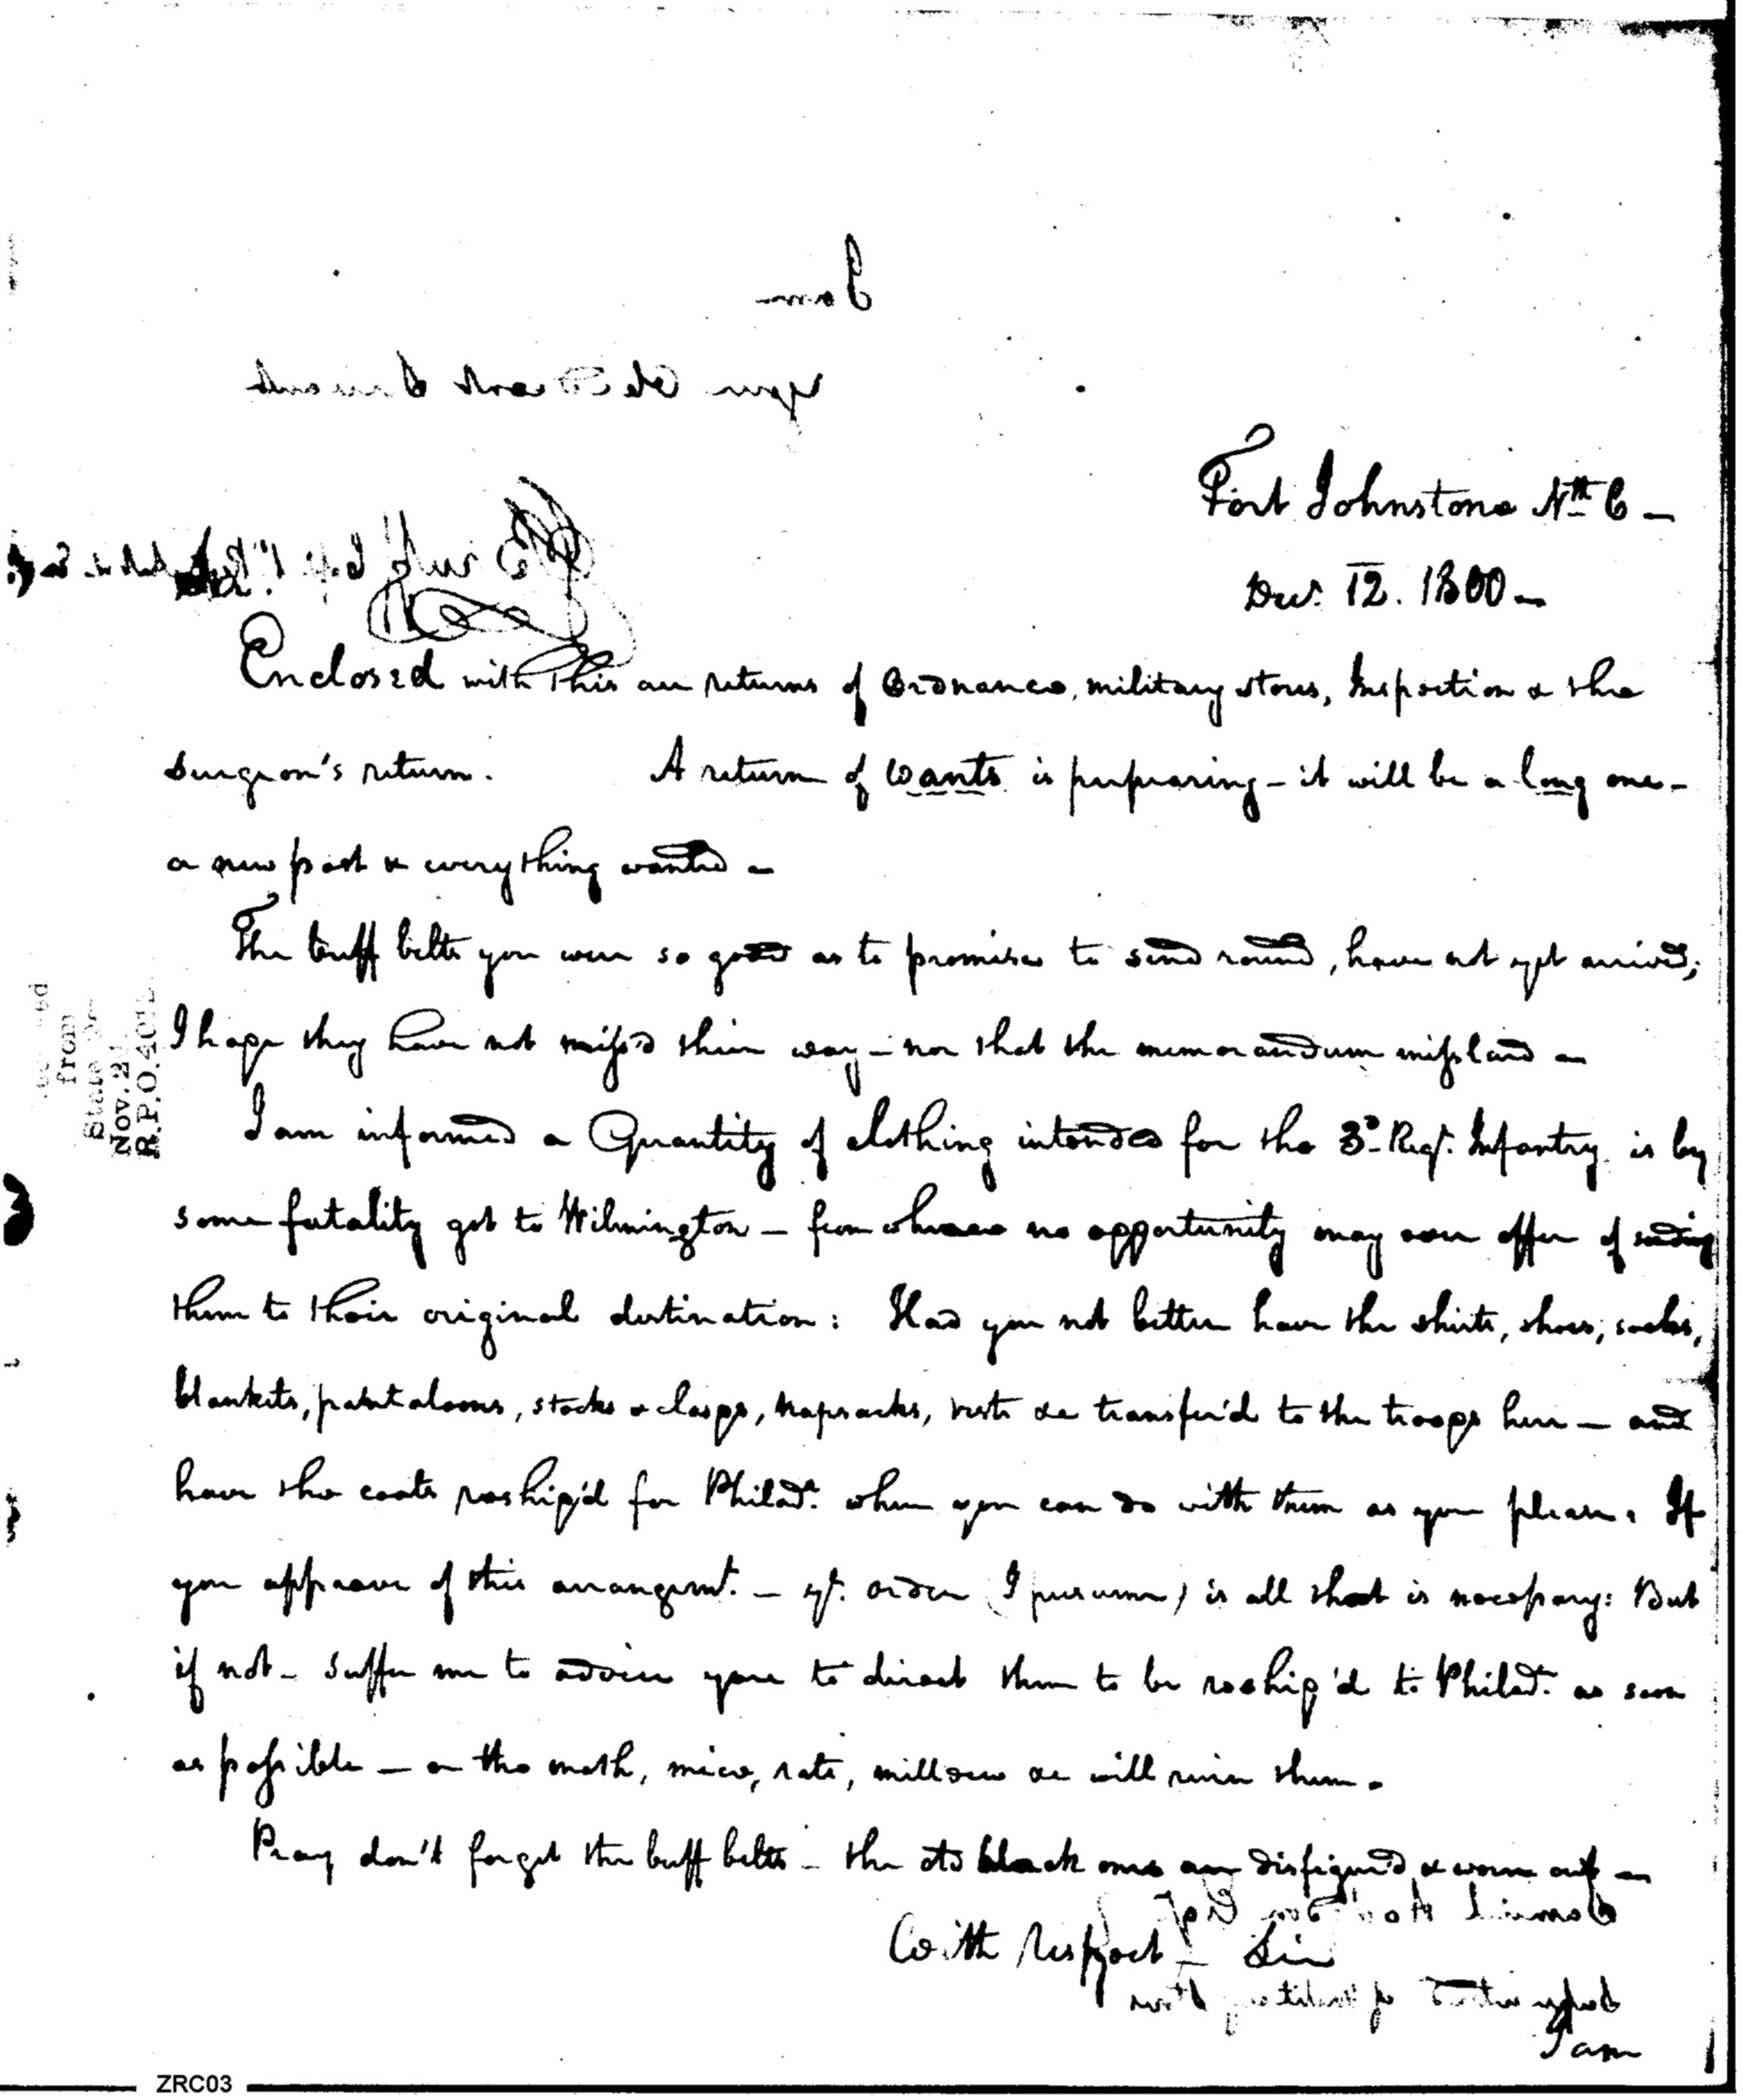 Fort Johnstone Nth C –
Decr. 12. 1800 –
Enclosed with this are returns of Ordnance, military stores, Inspection & the
Surgeon's return. A return of wants is prepraring – it will be a long one –
a new post & everything wanted –
The buff belts you were so good as to promise to send round, have not yet arrived;
I hope they have not miss'd their way – nor that the memorandum misslaid –
I am informed a Quantity of clothing intended for the 3d Regt. Infantry is by
some fatality got to Wilmington – from whence no opportunity may ever offer of sending
them to their original destination: Had you not better have the shirts, shoes, socks,
blankets, pantaloons, stocks & clasps, knapsacks, vests &c transfer'd to the troops here – and
have the coats reship'd for Philada. when you can do with them as you please. If
you approve of this arrangemt. – yr. order (I presume) is all that is necessary: But
if not – suffer me to advise you to direct them to be reship'd to Philada. as soon
as possible – or the moth, mice, rats, milldew &c will ruin them.
Pray don't forget the buff belts – the old black ones are disfigured & worn out –
With respect – Sir
I am
from
State
Nov. 2
R.P.O. 40
ZRC03